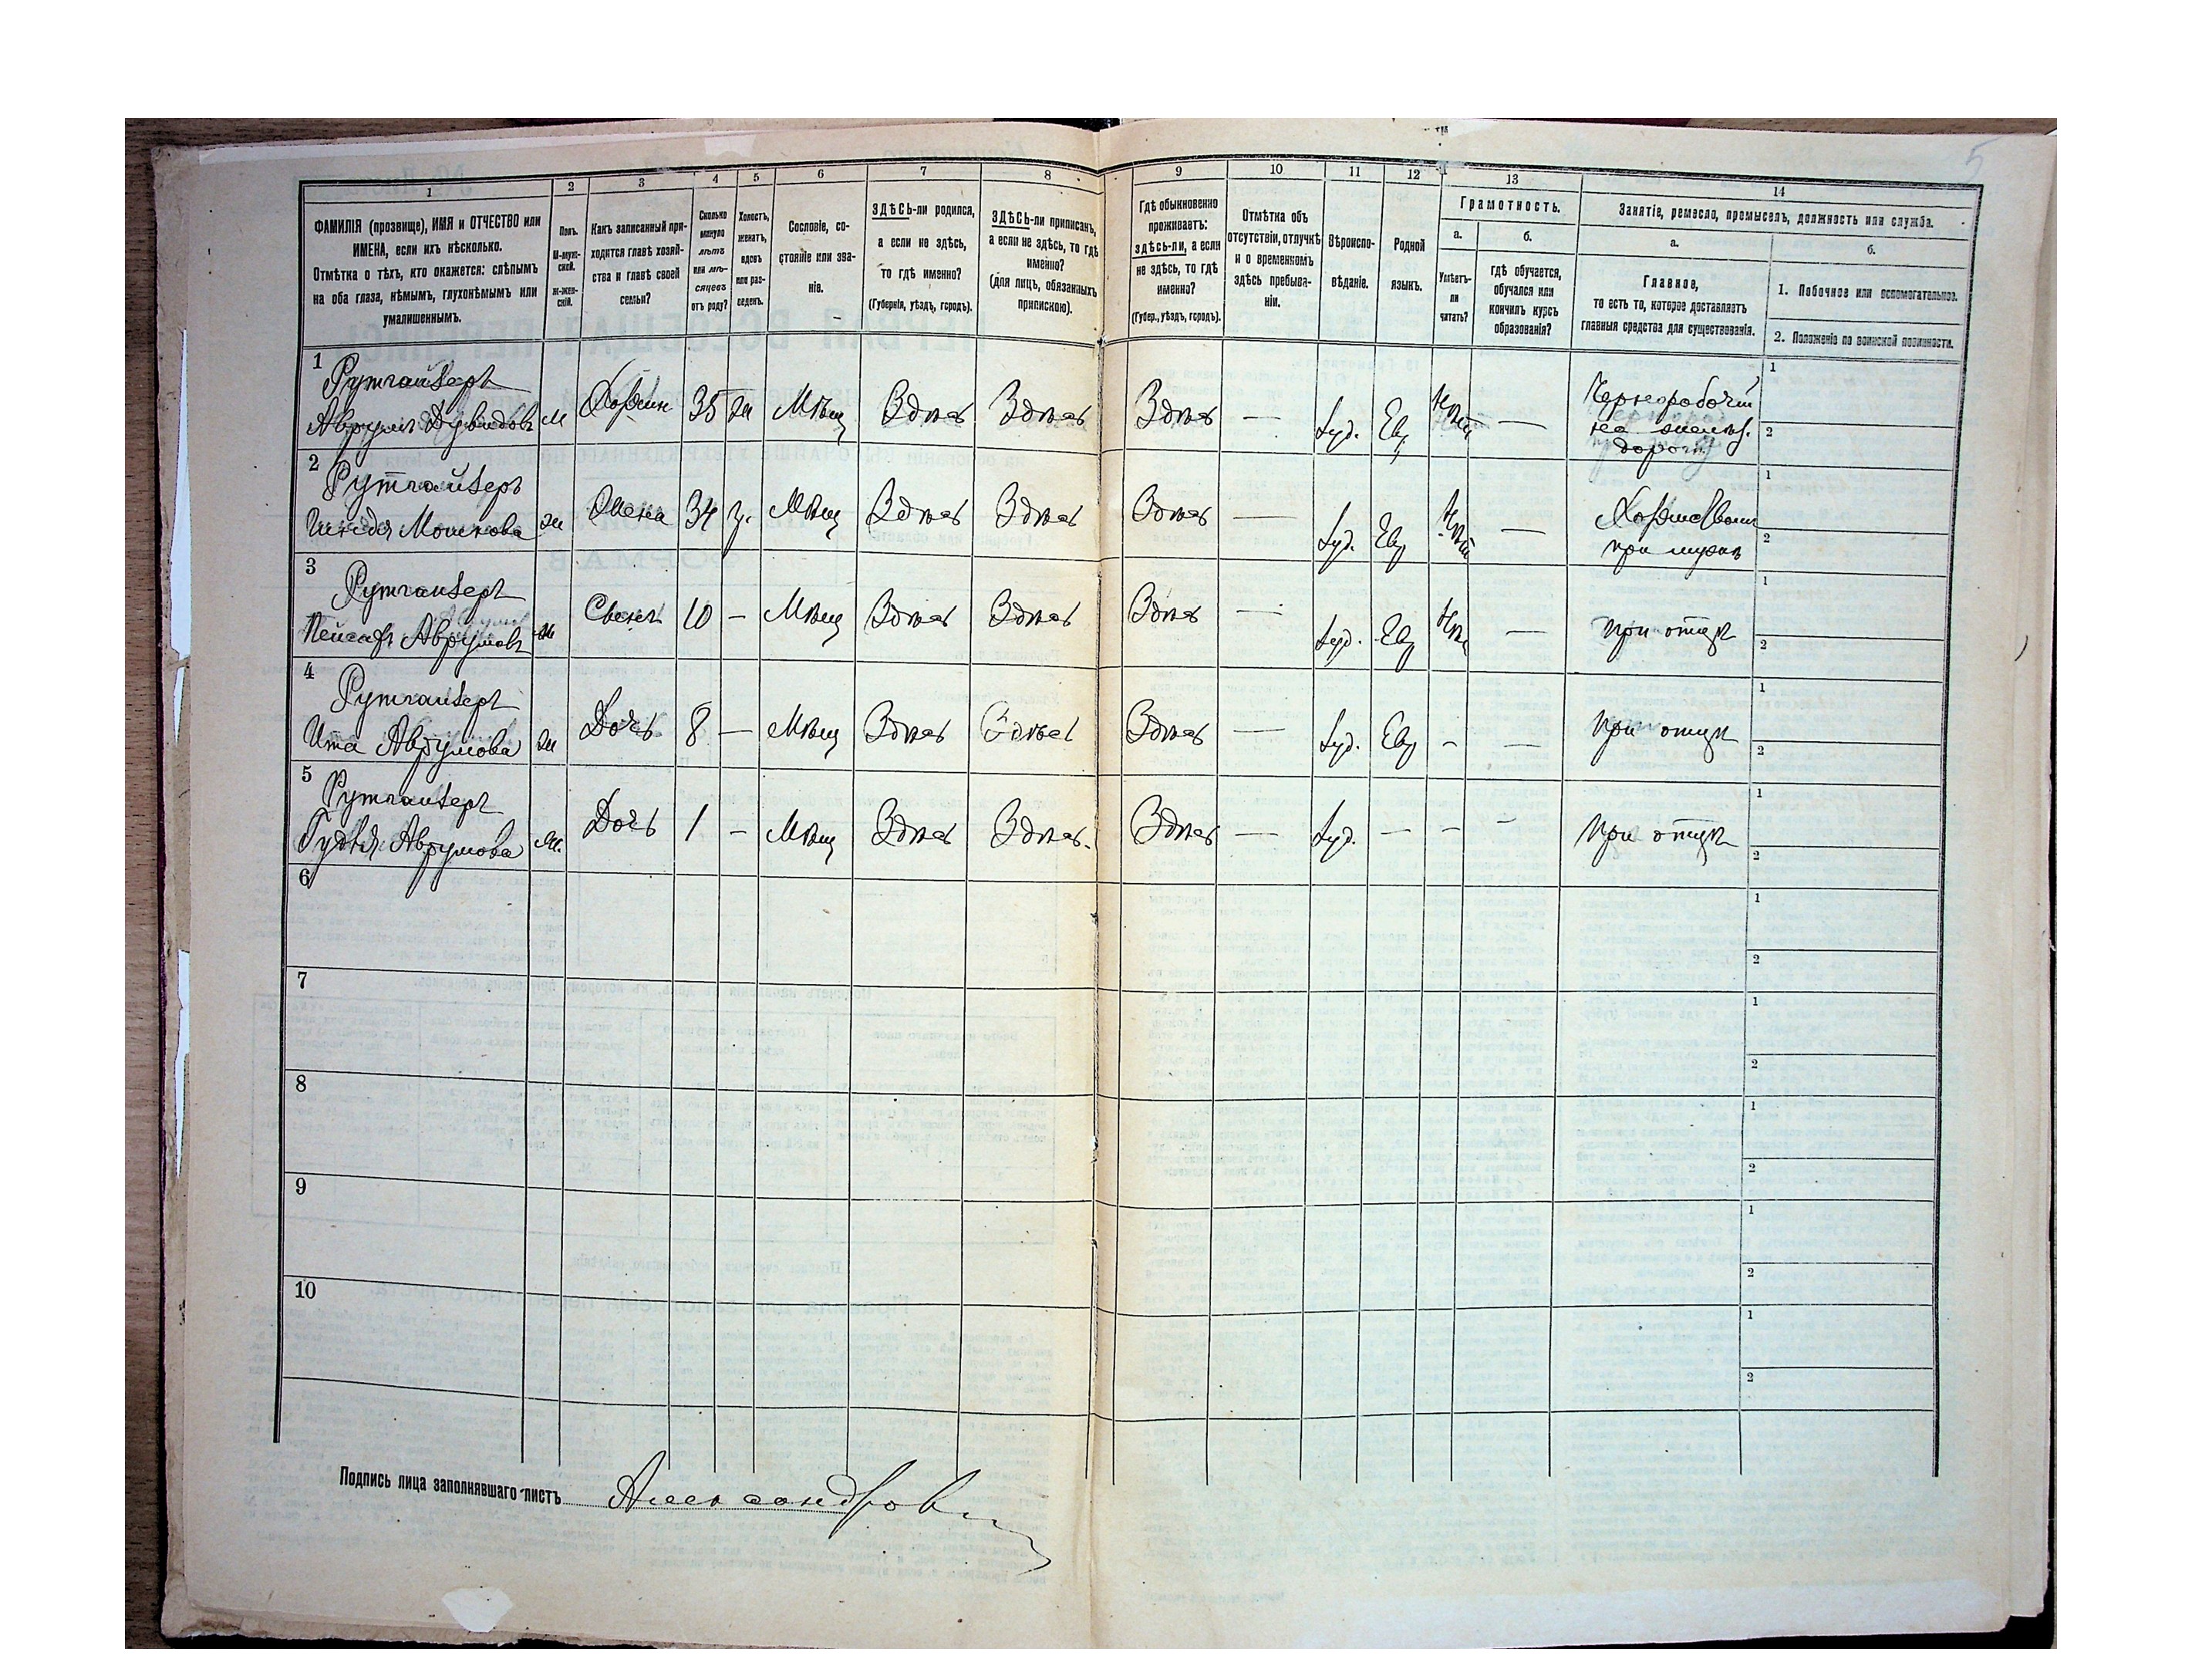 5
1 2 3 4 5 6 7 8 9 10 11 12 13 14
ФАМИЛІЯ (прозвище), ИМЯ и ОТЧЕСТВО или
ИМЕНА, если ихъ нѣсколько.
Отмѣтка о тѣхъ, кто окажется: слѣпымъ
на оба глаза, нѣмымъ, глухонѣмымъ или
умалишеннымъ.
Полъ.
М-муж-
ской.
Ж-жен-
скій.
Какъ записанный при-
ходится главѣ хозяй-
ства и главѣ своей
семьи?
Сколько
минуло
лѣтъ
или мѣ-
сяцевъ
отъ роду?
Холостъ,
женатъ,
вдовъ
или раз-
веденъ.
Сословіе, со-
стояніе или зва-
ніе.
ЗДѢСЬ-ли родился,
а если не здѣсь,
то гдѣ именно?
(Губернія, уѣздъ, городъ).
ЗДѢСЬ-ли приписанъ,
а если не здѣсь, то гдѣ
именно?
(для лицъ, обязанныхъ
припискою).
Гдѣ обыкновенно
проживаетъ:
здѣсь-ли, а если
не здѣсь, то гдѣ
именно?
(Губер., уѣздъ, городъ).
Отмѣтка объ
отсутствіи, отлучкѣ
и о временномъ
здѣсь пребыва-
ніи.
Вѣроиспо-
вѣданіе.
Родной
языкъ.
Грамотность.
а.
Умѣетъ-
ли
читать?
б.
гдѣ обучается,
обучался или
кончилъ курсъ
образованія?
Занятіе, ремесло, промыселъ, должность или служба.
а.
Главное,
то есть то, которое доставляетъ
главныя средства для существованія.
б.
1. Побочное или вспомогательное.
2. Положеніе по воинской повинности.
1 Рутгайзеръ
Аврумъ Дувидовъ м Хозяинъ 35 ж Мѣщ Здѣсь Здѣсь Здѣсь — Іуд. Евр нѣтъ — 1 2
Чернорабочій
на желѣз.
дорогѣ
2 Рутгайзеръ
Мошкова ж Жена 34 з. Мѣщ Здѣсь Здѣсь Здѣсь — Іуд. Евр нѣтъ — 1 2
при мужѣ
3 Рутгайзеръ
Пейсахъ Аврумовъ м Сынъ 10 — Мѣщ Здѣсь Здѣсь Здѣсь — Іуд. Евр — при отцѣ 1 2
4 Рутгайзеръ
Ита Аврумова ж Дочь 8 — Мѣщ Здѣсь Здѣсь Здѣсь — Іуд. Евр — — при отцѣ 1 2
5 Рутгайзеръ
Аврумова Дочь 1 — Мѣщ Здѣсь Здѣсь. Здѣсь — Іуд. — — — при отцѣ 1 2
6 1 2
7 1 2
8 1 2
9 1 2
10 1 2
Подпись лица заполнявшаго листъ